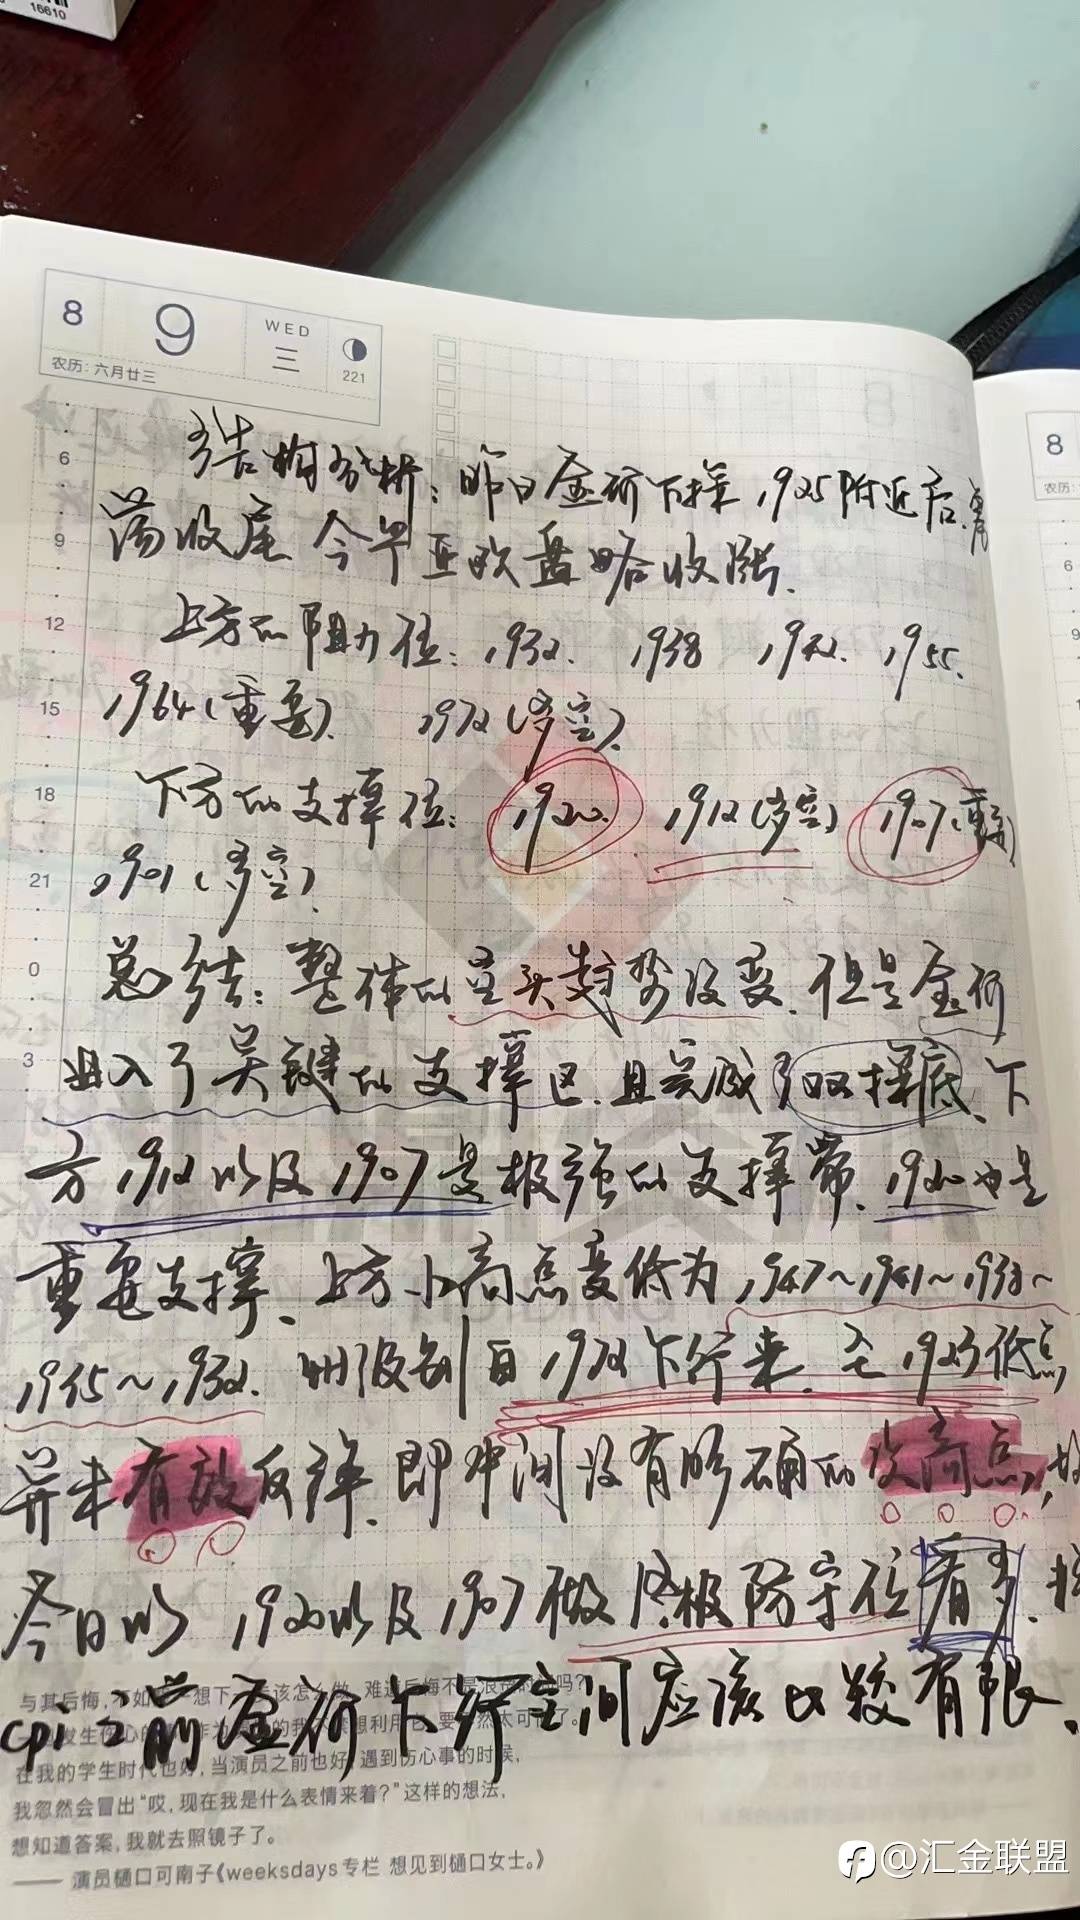 16610
8
9
WED
三
221
农历：六月廿三
8
农历：
结构分析：昨日金价下探1925附近后,震
荡收尾 今早亚欧盘略收涨.
上方的阻力位：1932. 1938 1942. 1955.
1964(重要). 1972(多空).
下方的支撑位：1920. 1912(多空) 1907(重要)
1901(多空).
总结：整体的空头趋势没变.但是金价
进入了关键的支撑区.且完成了双探底、下
方1912以及1907是极强的支撑带、1920也是
重要支撑、上方小高点变低为1947～1941～1938～
1935～1932. 测级别自1972下行来.至1923低点
并未有效反弹.即中间没有明确的次高点,故
今日以1920以及1907做终极防守位看多.
cpi之前金价下行空间应该比较有限.
6
9
12
15
18
21
0
3
6
9
与其后悔，不如
在我的学生时代也好，当演员之前也好，遇到伤心事的时候，
我忽然会冒出“哎，现在我是什么表情来着？”这样的想法，
想知道答案，我就去照镜子了。
—— 演员樋口可南子《weeksdays 专栏 想见到樋口女士。》
@汇金联盟